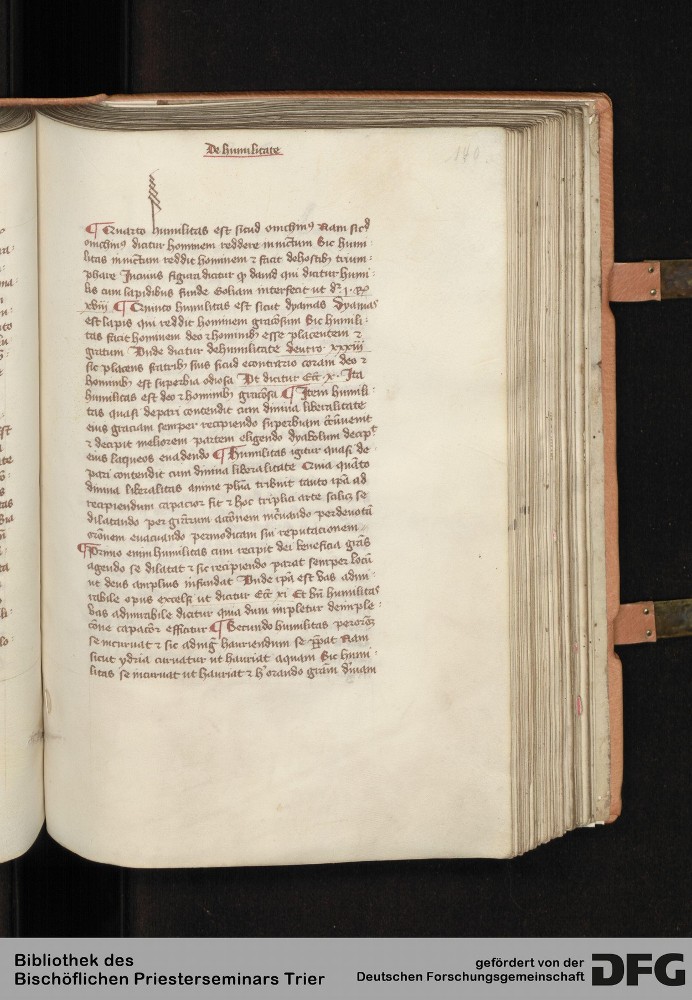 De humilitate
140
¶ Quarto humilitas est sicud onichinꝰ Nam sicd
onichinꝰ dicitur hominem reddere inuictum Sic humi
litas inuictum reddit hominem ⁊ facit de hostibꝫ trium
phare Cuius figura dicitur dauid qui dicitur humi
lis cum lapidibus funde Goliam interfecit ut dꝛ .1. Rꝫ
xviii ¶ Quinto humilitas est sicut dyamas Dyamas
est lapis qui reddit hominem graciosum Sic humili
tas facit hominem deo ⁊ hominibꝫ esse placentem ⁊
gratum Unde dicitur de humilitate deutro xxxiii
sic placens fratribꝫ suis sicud econtrario coram deo ⁊
hominibꝫ est superbia odiosa Ut dicitur Ecc x Ita
humilitas est deo ⁊ hominibꝫ graciosa ¶ Item humili
tas quasi de pari contendit cum diuina liberalitate
eius graciam semper recipiendo superbiam
⁊ decipit meliorem partem eligendo dyabolum
eius laqueos euadendo ¶ Humilitas igitur quasi de
pari contendit cum diuina liberalitate Quia quāto
diuina liberalitas anime plīa tribuit tanto ipā ad
recipiendum capacior fit ⁊ hoc triplici arte scilicꝫ se
dilatando per grārum accōnem incuando per deuotā
orōnem euacuando per modicam sui reputacionem
¶ Primo enim humilitas cum recipit dei beneficia grās
agendo se dilatat ⁊ sic recipiendo parat semper locū
ut deus amplius infundat Unde ipā est vas admi
rabile opus excelsi ut dicitur Ecc xi Et bn̄ humilitas
vas admirabile dicitur quia dum impletur de imple
cōne capacior efficitur ¶ Secundo humilitas per
se incuruat ⁊ sic ad hauriendum se Nam
sicut ydria curuatur ut hauriat aquam Sic humi
litas se incuruat ut hauriat ⁊ hꝰ orando grām
Bibliothek des
Bischöflichen Priesterseminars Trier
gefördert von der
Deutschen Forschungsgemeinschaft
DFG